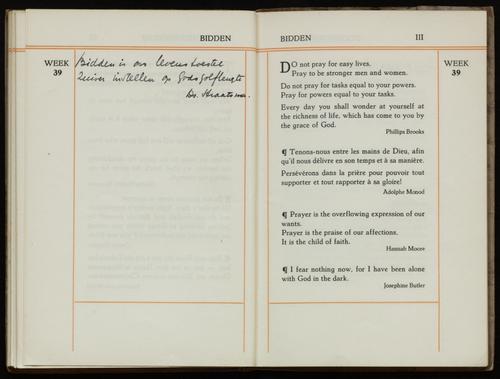 BIDDEN
WEEK
39
Bidden is ons levens toestel
Zuiver instellen op Gods golflengte
Ds.
BIDDEN III
WEEK
39
DO not pray for easy lives.
Pray to be stronger men and women.
Do not pray for tasks equal to your powers.
Pray for powers equal to your tasks.
Every day you shall wonder at yourself at
the richness of life, which has come to you by
the grace of God.
Phillips Brooks
¶ Tenons-nous entre les mains de Dieu, afin
qu'il nous délivre en son temps et à sa manière.
Persévérons dans la prière pour pouvoir tout
supporter et tout rapporter à sa gloire!
Adolphe Monod
¶ Prayer is the overflowing expression of our
wants.
Prayer is the praise of our affections.
It is the child of faith.
Hannah Moore
¶ I fear nothing now, for I have been alone
with God in the dark.
Josephine Butler